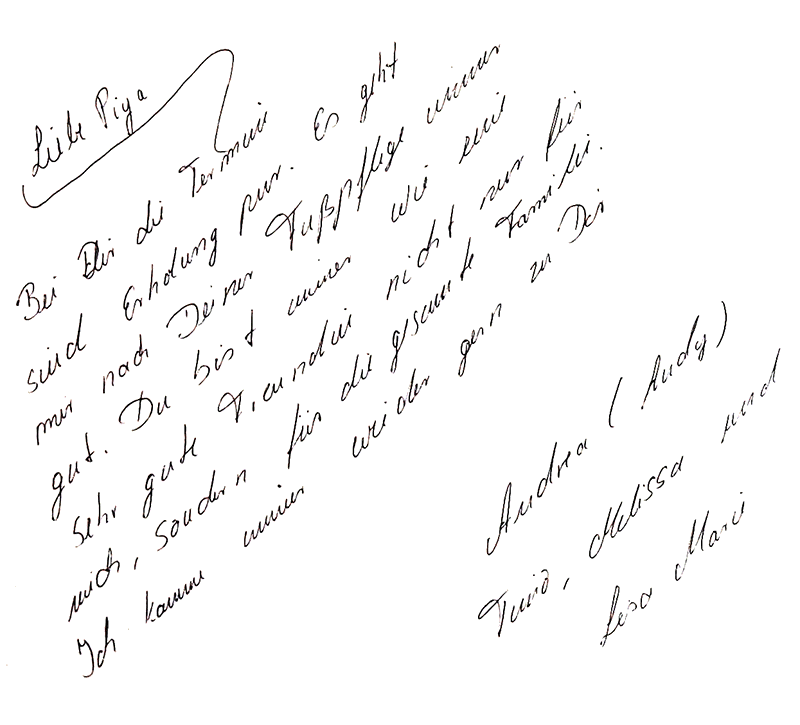 Liebe Piya
Bei Dir die Termine
sind Erholung pur. Es geht
mir nach Deiner Fußpflege immer
gut. Du bist immer wie eine
sehr gute Freundin nicht nur für
mich, sondern für die gesamte Familie.
Ich komme immer wieder gern zu Dir
Andrea (Andy)
Melissa und
Lisa Marie